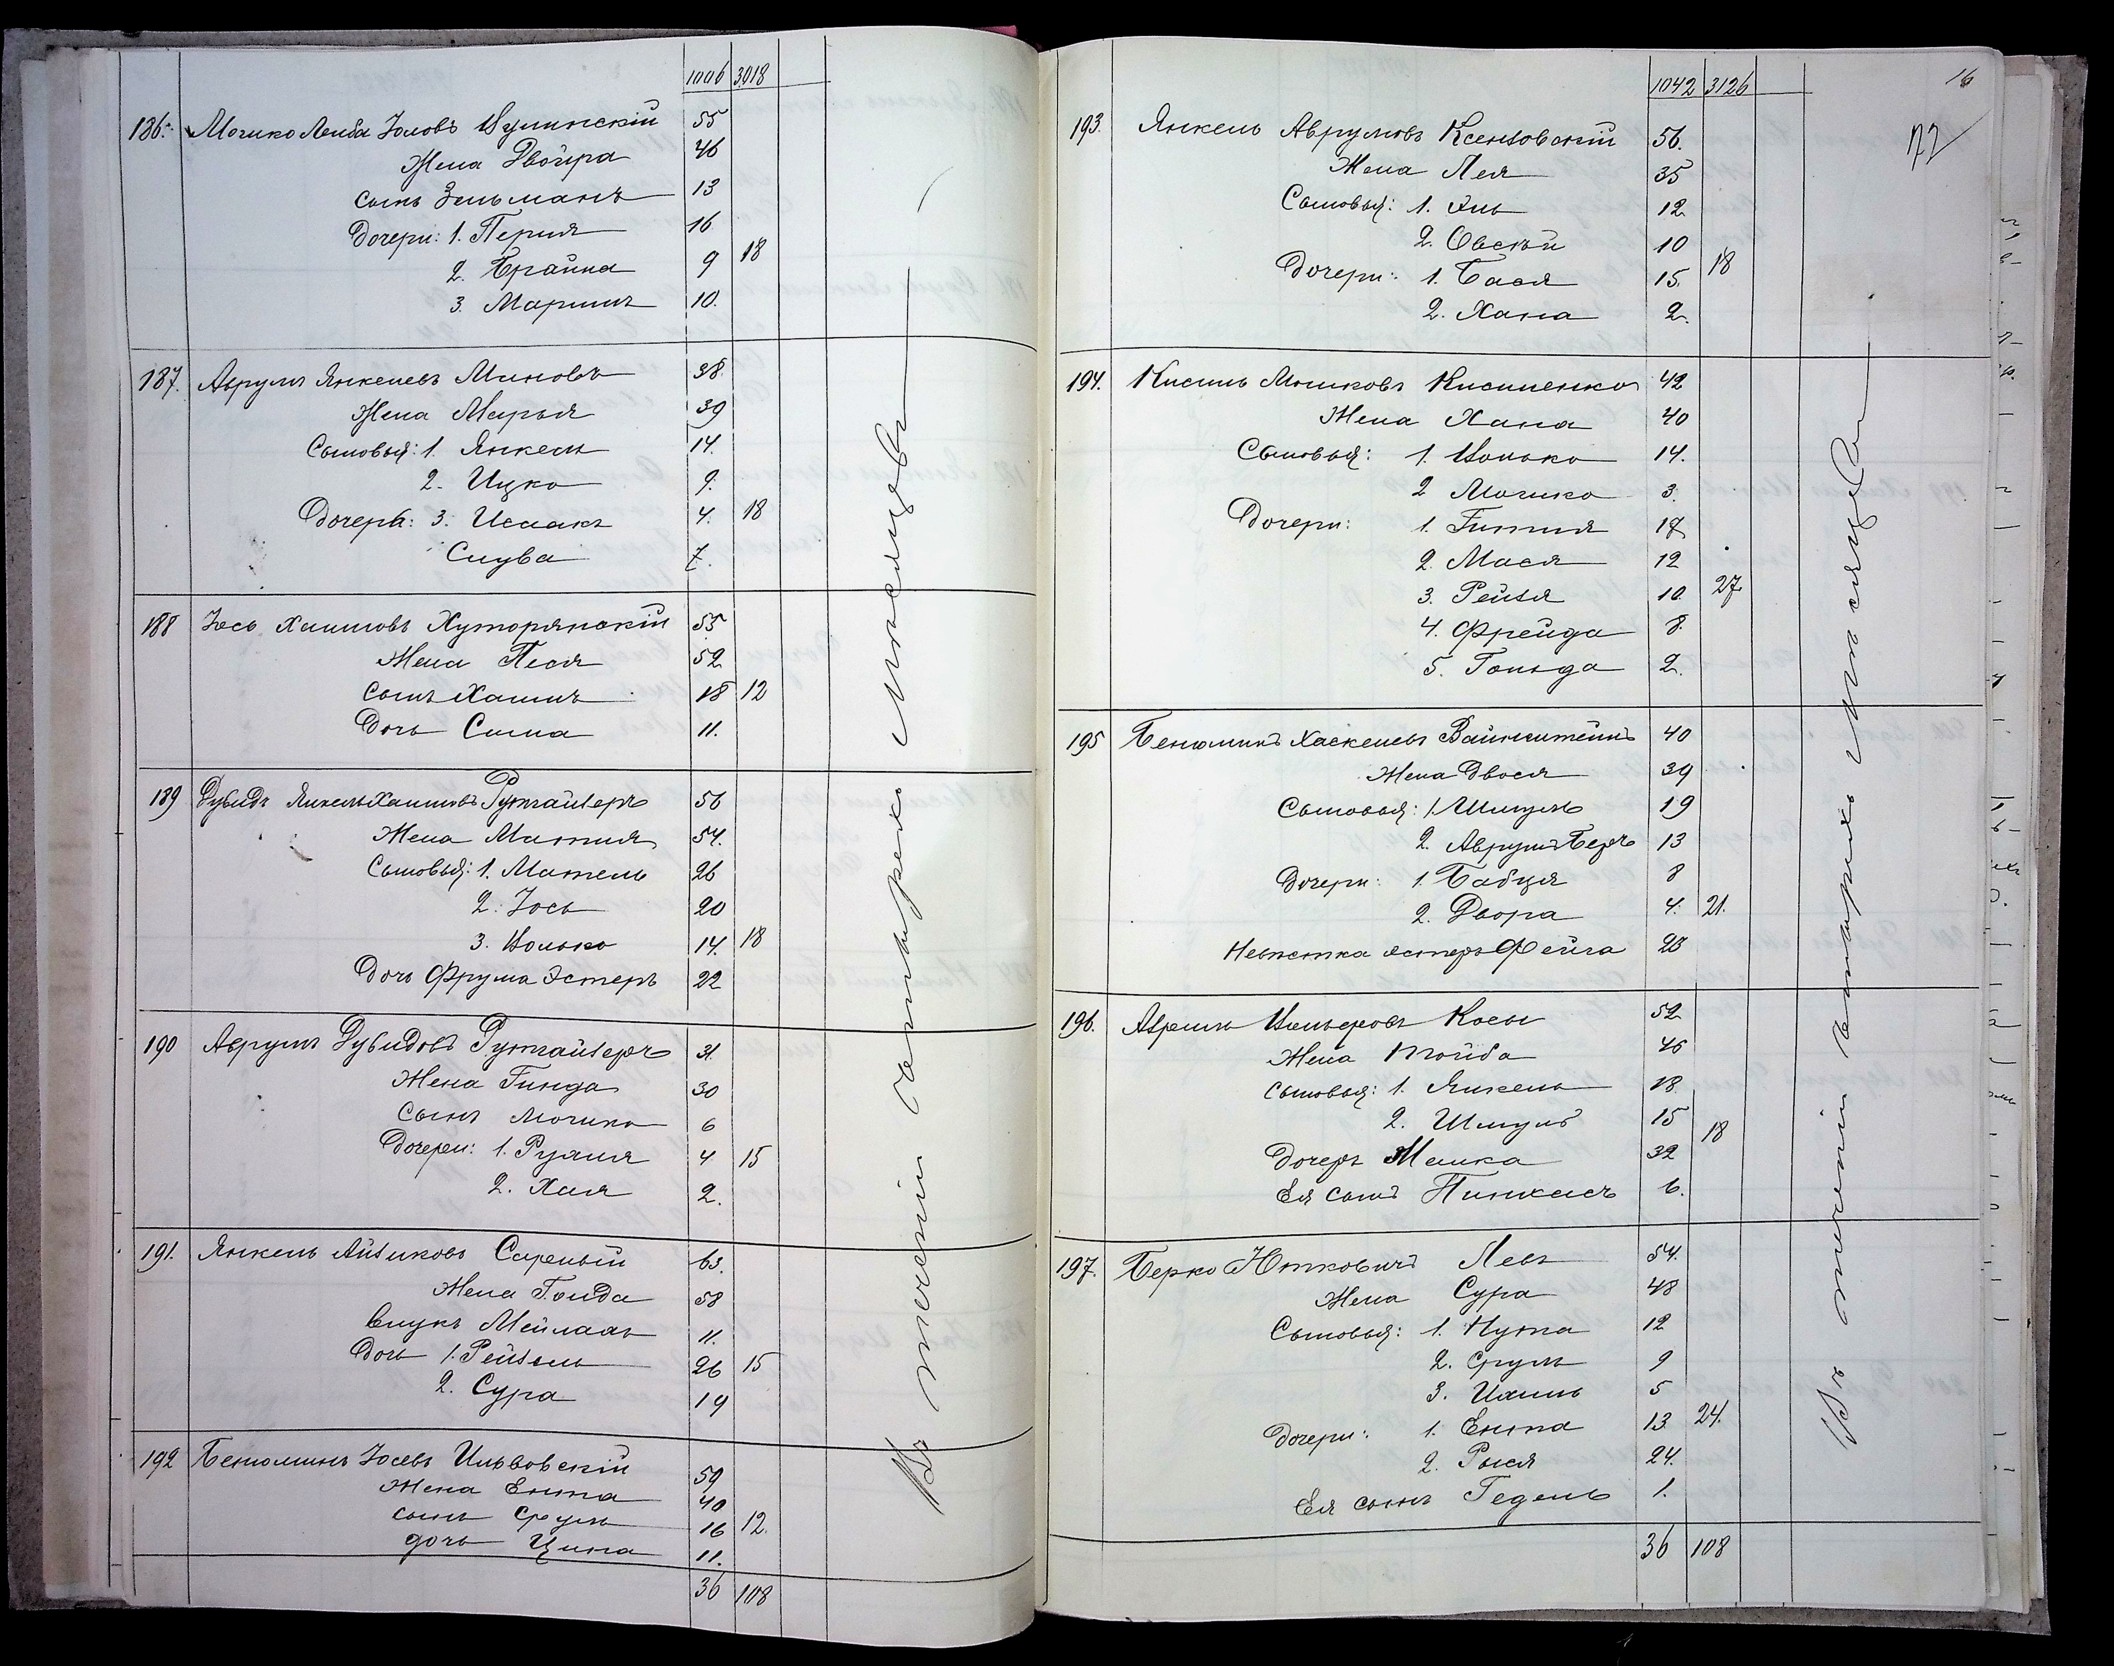 1006 3018
186. Мошко Лейба Іоловъ Шулинскій 55
Жена Двойра 46
сынъ Зельманъ 13
Дочери: 1. Перля 16
2. Брайна 9 18
3. Маріимъ 10.
187. Аврумъ Янкелевъ Миновъ 38
Жена Марья 39
Сыновья: 1. Янкель 14.
2. Ицко 9.
Дочерь: 3. Исаакъ 4. 18
Слува 7.
188 Іось Хаимовъ Хуторянскій 55
Жена Песя 52
сынъ Хаимъ 18 12
Дочь Сима 11.
189 Дувидъ Янкель Хаимовъ Рутгайзеръ 56
Жена Матля 54.
Сыновья: 1. Мотель 26
2. Іось 20
3. Волько 14. 18
Дочь Фрума Эстеръ 22
190 Аврумъ Дувидовъ Рутгайзеръ 31.
Жена Гинда 30
Сынъ Мошко 6
Дочери: 1. Рухля 4 15
2. Хая 2.
191. Янкель Айзиковъ Сареный 63.
Жена Голда 58
внукъ Мейлахъ 11.
Дочь 1. Рейзель 26 15
2. Сура 19
192 Бенюминъ Іосевъ Ильвовскій 59
Жена Ента 40
сынъ Сруль 16 12.
дочь Ципа 11.
36 108
Въ теченіи четырехъ мѣсяцевъ
1042 3126
16
72
193. Янкель Аврумовъ Ксензовскій 56.
Жена Лея 35
Сыновья: 1. Эль 12
2. Овсѣй 10
Дочери: 1. Бася 15. 18
2. Хана 2.
194. Кисиль Мошковъ Кисиленко 42
Жена Хана 40
Сыновья: 1. Волько 14.
2 Мошко 3.
Дочери: 1. Гитля 17
2. Мася 12
3. Рейзя 10. 27
4. Фрейда 8.
5. Гольда 2.
195 Бенюминъ Хаскелевъ Вайнштейнъ 40
Жена Двося 39
Сыновья: 1 Шмуль 19
2. Аврумъ Беръ 13
Дочери: 1. Бабця 8
2. Двора 4. 21.
Невѣстка Эстеръ Фейга 23
196. Абрамъ Косы 52
Жена Тойба 46
Сыновья: 1. Янкель 18
2. Шмуль 15
18
Дочерь Малка 32
Ея сынъ Пинхасъ 6.
197. Берко Ютковичъ Левъ 54.
Жена Сура 48
Сыновья: 1. Нута 12
2. Сруль 9
3. Ихиль 5
Дочери: 1. Ента 13 24.
2. Рыся 24.
Ея сынъ Гедель 1.
36 108
Въ теченіи четырехъ мѣсяцевъ